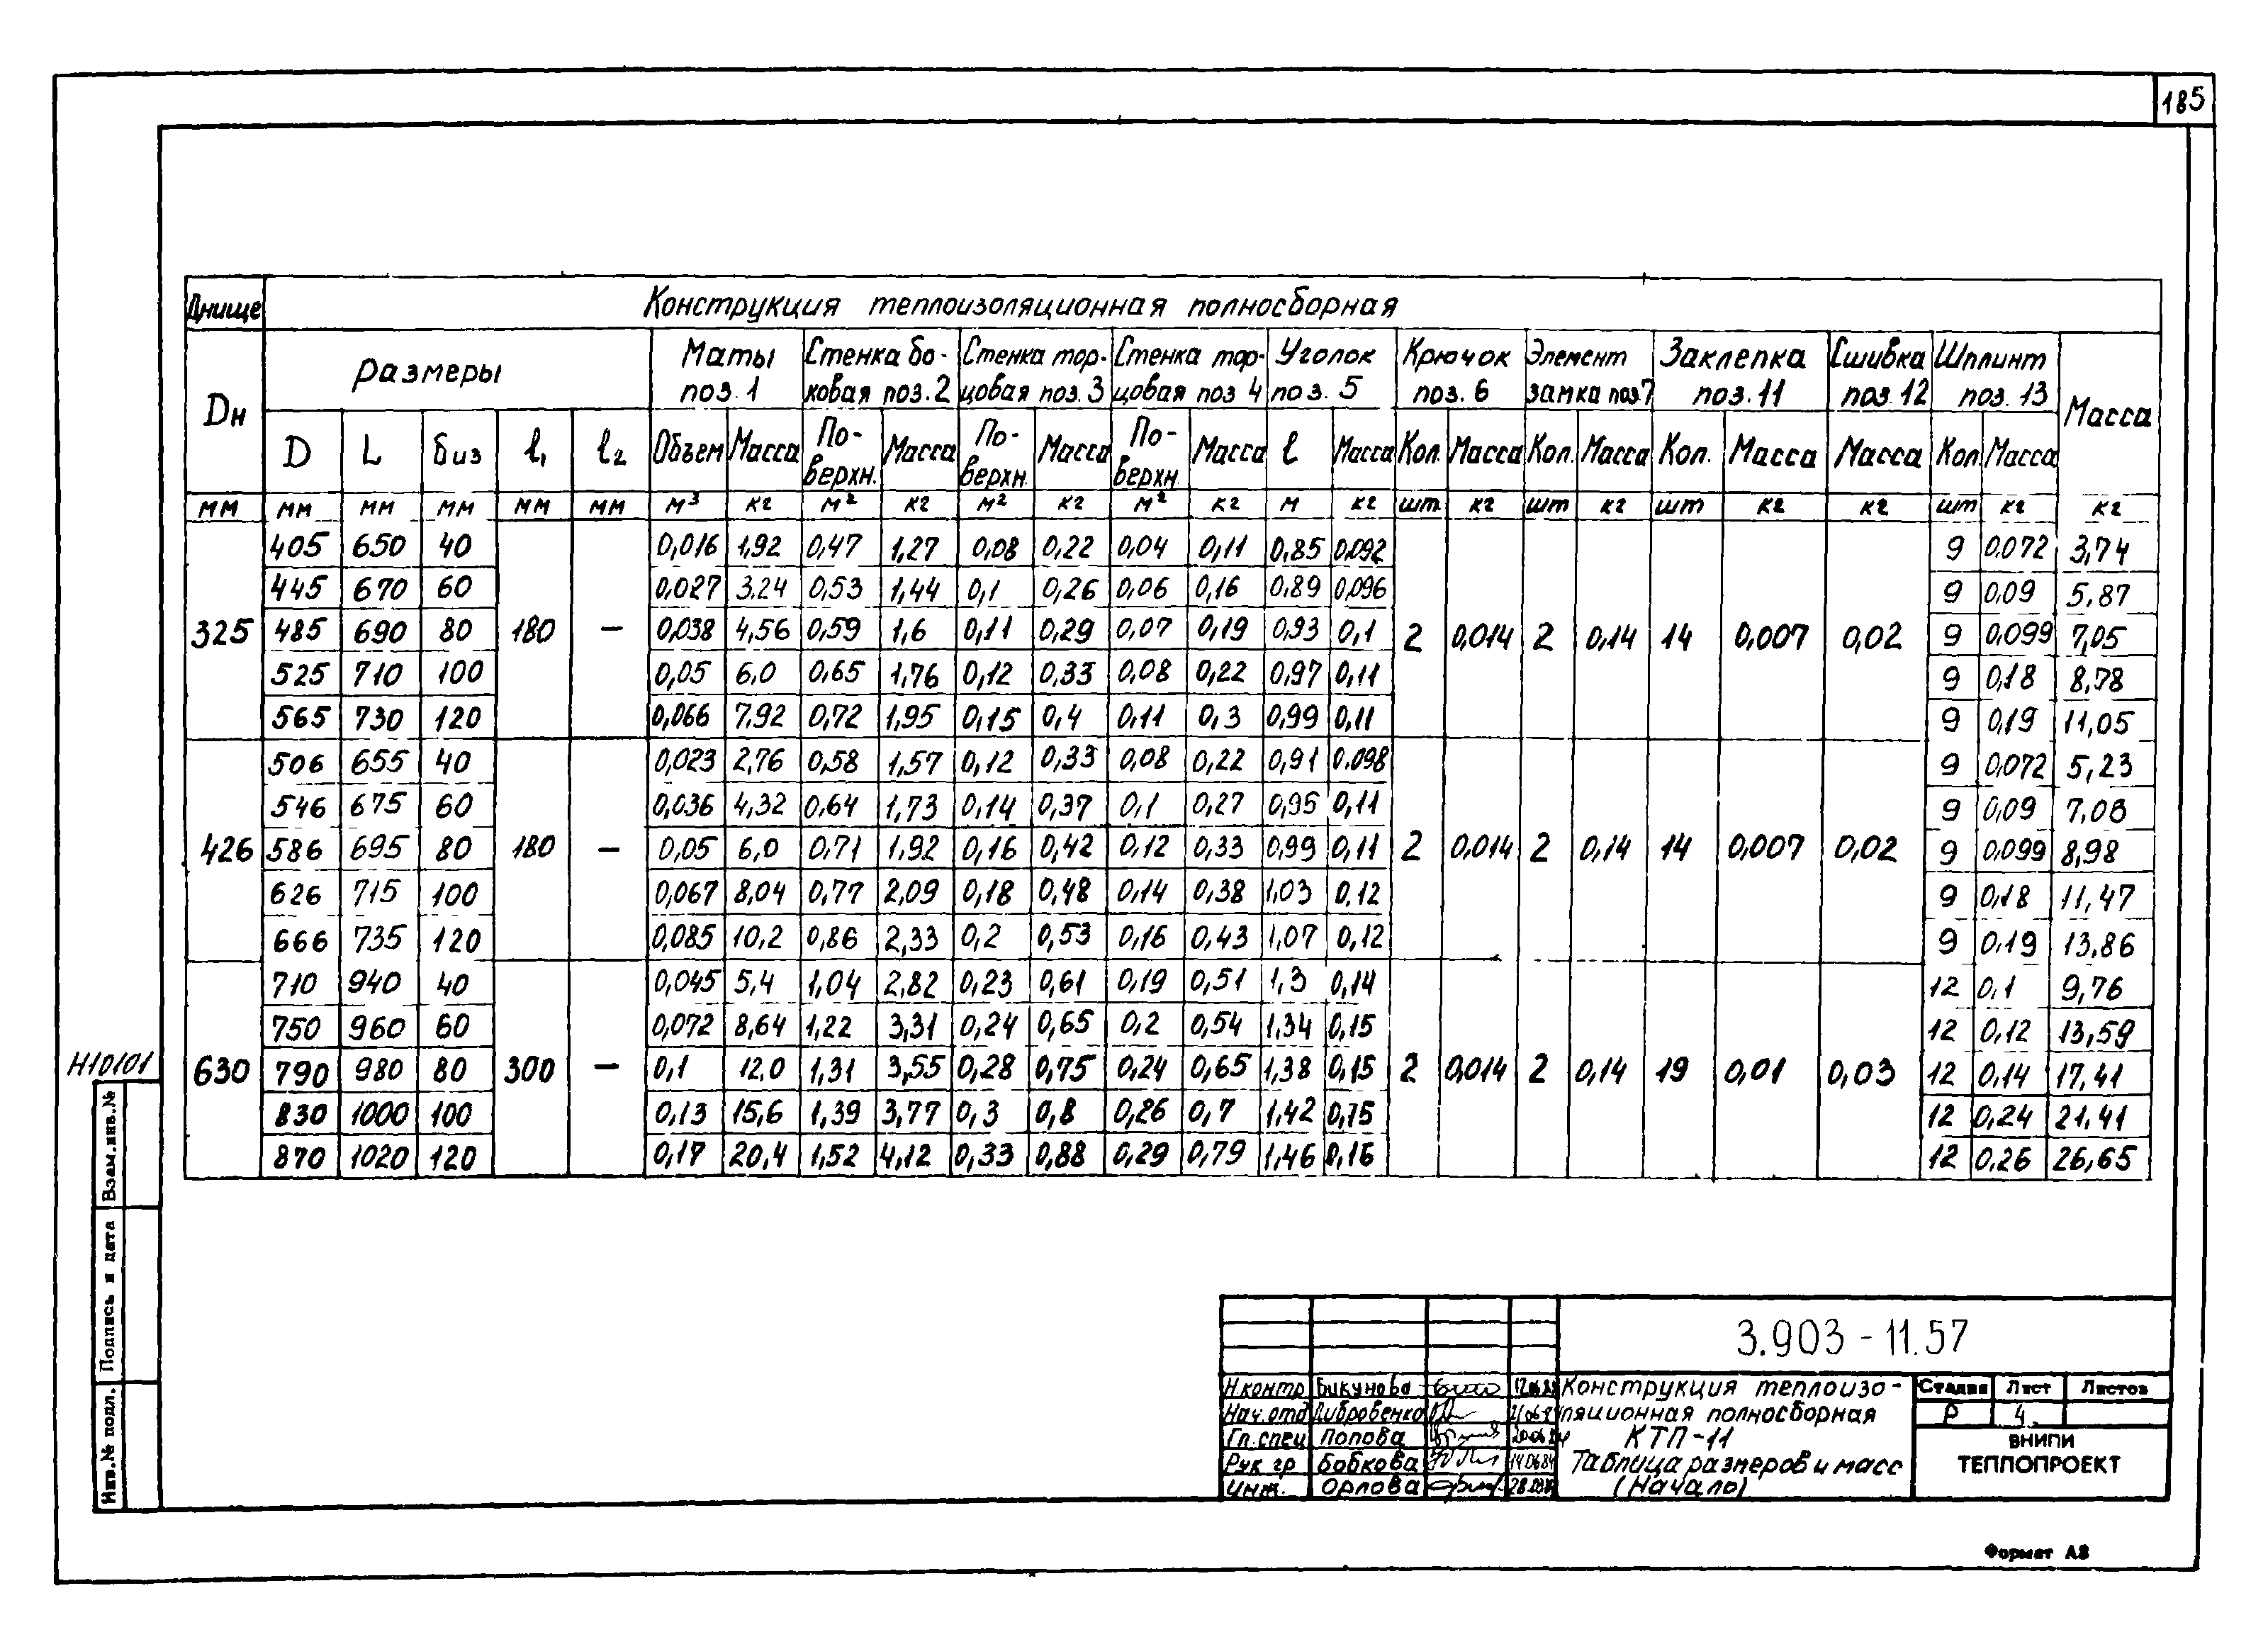 185
Днище Конструкция теплоизоляционная полносборная
Dн размеры Маты поз. 1 Стенка боковая поз. 2 Стенка торцовая поз. 3 Стенка торцовая поз 4 Уголок поз. 5 Крючок поз. 6 Элемент замка поз7 Заклепка поз. 11 Сшивка поз. 12 Шплинт поз. 13 Масса
D L биз l₁ l₂ Объем Масса По-верхн. Масса По-верхн. Масса По-верхн. Масса l Масса Кол. Масса Кол. Масса Кол. Масса Масса Кол Масса
мм мм мм мм мм мм м³ кг м² кг м² кг м² кг м кг шт. кг шт кг шт кг кг шт кг кг
405 650 40 0,016 1,92 0,47 1,27 0,08 0,22 0,04 0,11 0,85 0,092 9 0.072 3,74
445 670 60 0,027 3,24 0,53 1,44 0,1 0,26 0,06 0,16 0,89 0,096 9 0,09 5,87
325 485 690 80 180 — 0,038 4,56 0,59 1,6 0,11 0,29 0,07 0,19 0,93 0,1 2 0,014 2 0,14 14 0,007 0,02 9 0,099 7,05
525 710 100 0,05 6,0 0,65 1,76 0,12 0,33 0,08 0,22 0,97 0,11 9 0,18 8,78
565 730 120 0,066 7,92 0,72 1,95 0,15 0,4 0,11 0,3 0,99 0,11 9 0,19 11,05
506 655 40 0,023 2,76 0,58 1,57 0,12 0,33 0,08 0,22 0,91 0,098 9 0,072 5,23
546 675 60 0,036 4,32 0,64 1,73 0,14 0,37 0,1 0,27 0,95 0,11 9 0,09 7,08
426 586 695 80 180 — 0,05 6,0 0,71 1,92 0,16 0,42 0,12 0,33 0,99 0,11 2 0,014 2 0,14 14 0,007 0,02 9 0,099 8,98
626 715 100 0,067 8,04 0,77 2,09 0,18 0,48 0,14 0,38 1,03 0,12 9 0,18 11,47
666 735 120 0,085 10,2 0,86 2,33 0,2 0,53 0,16 0,43 1,07 0,12 9 0,19 13,86
710 940 40 0,045 5,4 1,04 2,82 0,23 0,61 0,19 0,51 1,3 0,14 12 0,1 9,76
750 960 60 0,072 8,64 1,22 3,31 0,24 0,65 0,2 0,54 1,34 0,15 12 0,12 13,59
630 790 980 80 300 — 0,1 12,0 1,31 3,55 0,28 0,75 0,24 0,65 1,38 0,15 2 0,014 2 0,14 19 0,01 0,03 12 0,14 17,41
830 1000 100 0,13 15,6 1,39 3,77 0,3 0,8 0,26 0,7 1,42 0,15 12 0,24 21,41
870 1020 120 0,17 20,4 1,52 4,12 0,33 0,88 0,29 0,79 1,46 0,16 12 0,26 26,65
Н10101
Взам.инв.№
Подпись и дата
Инв.№ подл.
3.903-11.57
Н.контр Бикунова
Нач.отд Дибровенко
Гл.спец Попова
Рук гр Бобкова 14.06.84
Инж. Орлова
Конструкция теплоизо-
ляционная полносборная
КТП-11
Таблица размеров и масс
(Начало)
Стадия Лист Листов
Р 4
ВНИПИ
ТЕПЛОПРОЕКТ
Формат А3